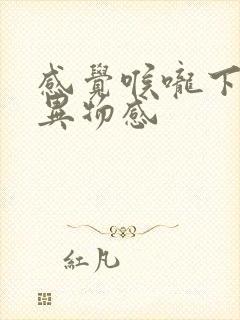 感覺喉嚨下
異物感
紅凡